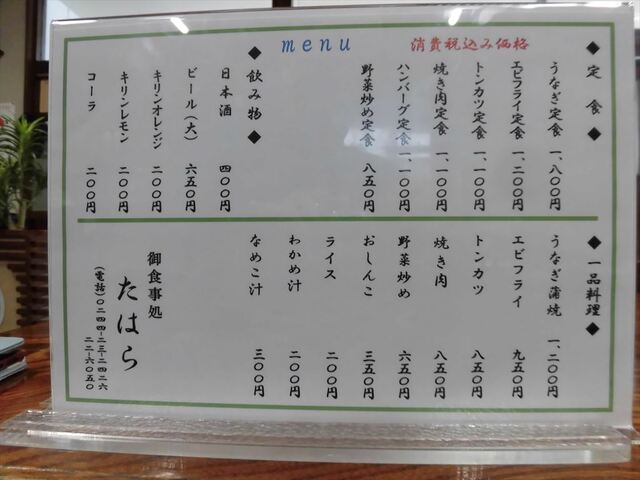 menu
消費税込み価格
◆定食◆
うなぎ定食 一、八〇〇円
エビフライ定食 一、二〇〇円
トンカツ定食 一、一〇〇円
焼き肉定食 一、一〇〇円
ハンバーグ定食 一、一〇〇円
野菜炒め定食 八五〇円
◆飲み物◆
日本酒 四〇〇円
ビール(大) 六五〇円
キリンオレンジ 二〇〇円
キリンレモン 二〇〇円
コーラ 二〇〇円
◆一品料理◆
うなぎ蒲焼 一、二〇〇円
エビフライ 九五〇円
トンカツ 八五〇円
焼き肉 八五〇円
野菜炒め 六五〇円
おしんこ 三五〇円
ライス 二〇〇円
わかめ汁 二〇〇円
なめこ汁 三〇〇円
御食事処
たはら
(電話)〇二四四-二三-二四二六
二二-六〇五〇